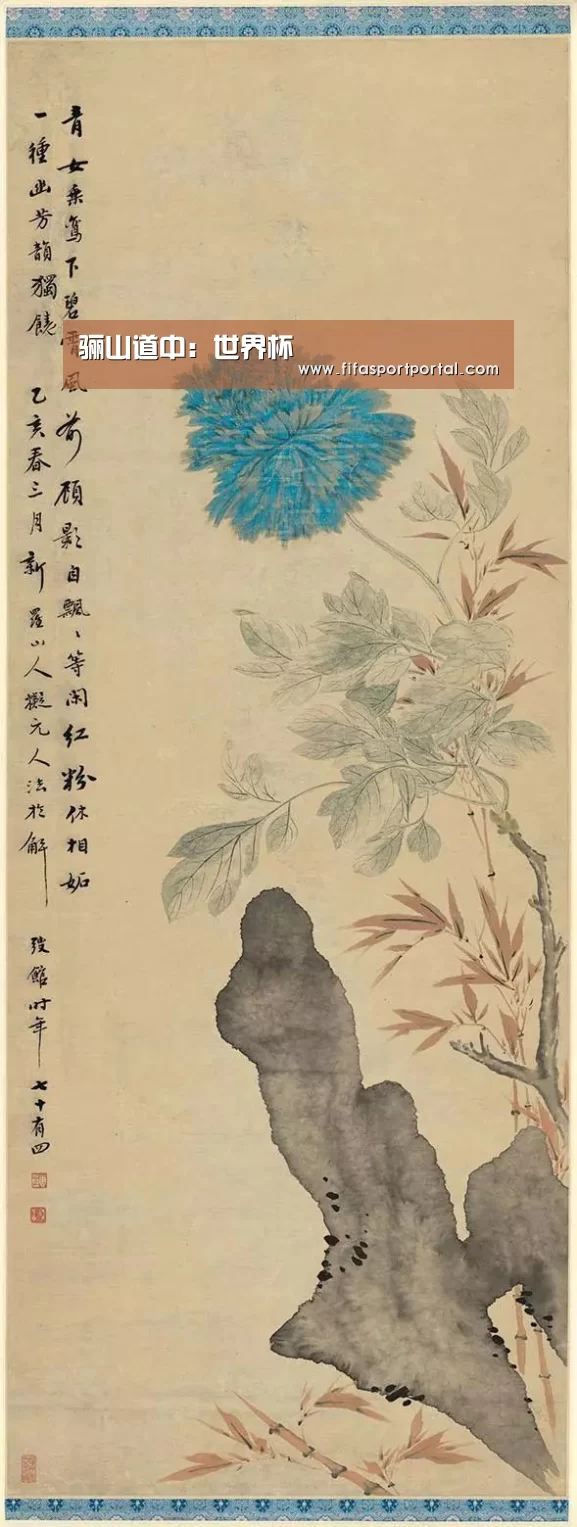 骊山道中：世界杯
www.fifasportportal.com
青女乘鸞下碧霄風前顧影自飄〻等闲红粉休相妬
一種幽芳韻獨饒 乙亥春三月新羅山人擬元人法於解弢館時年七十有四